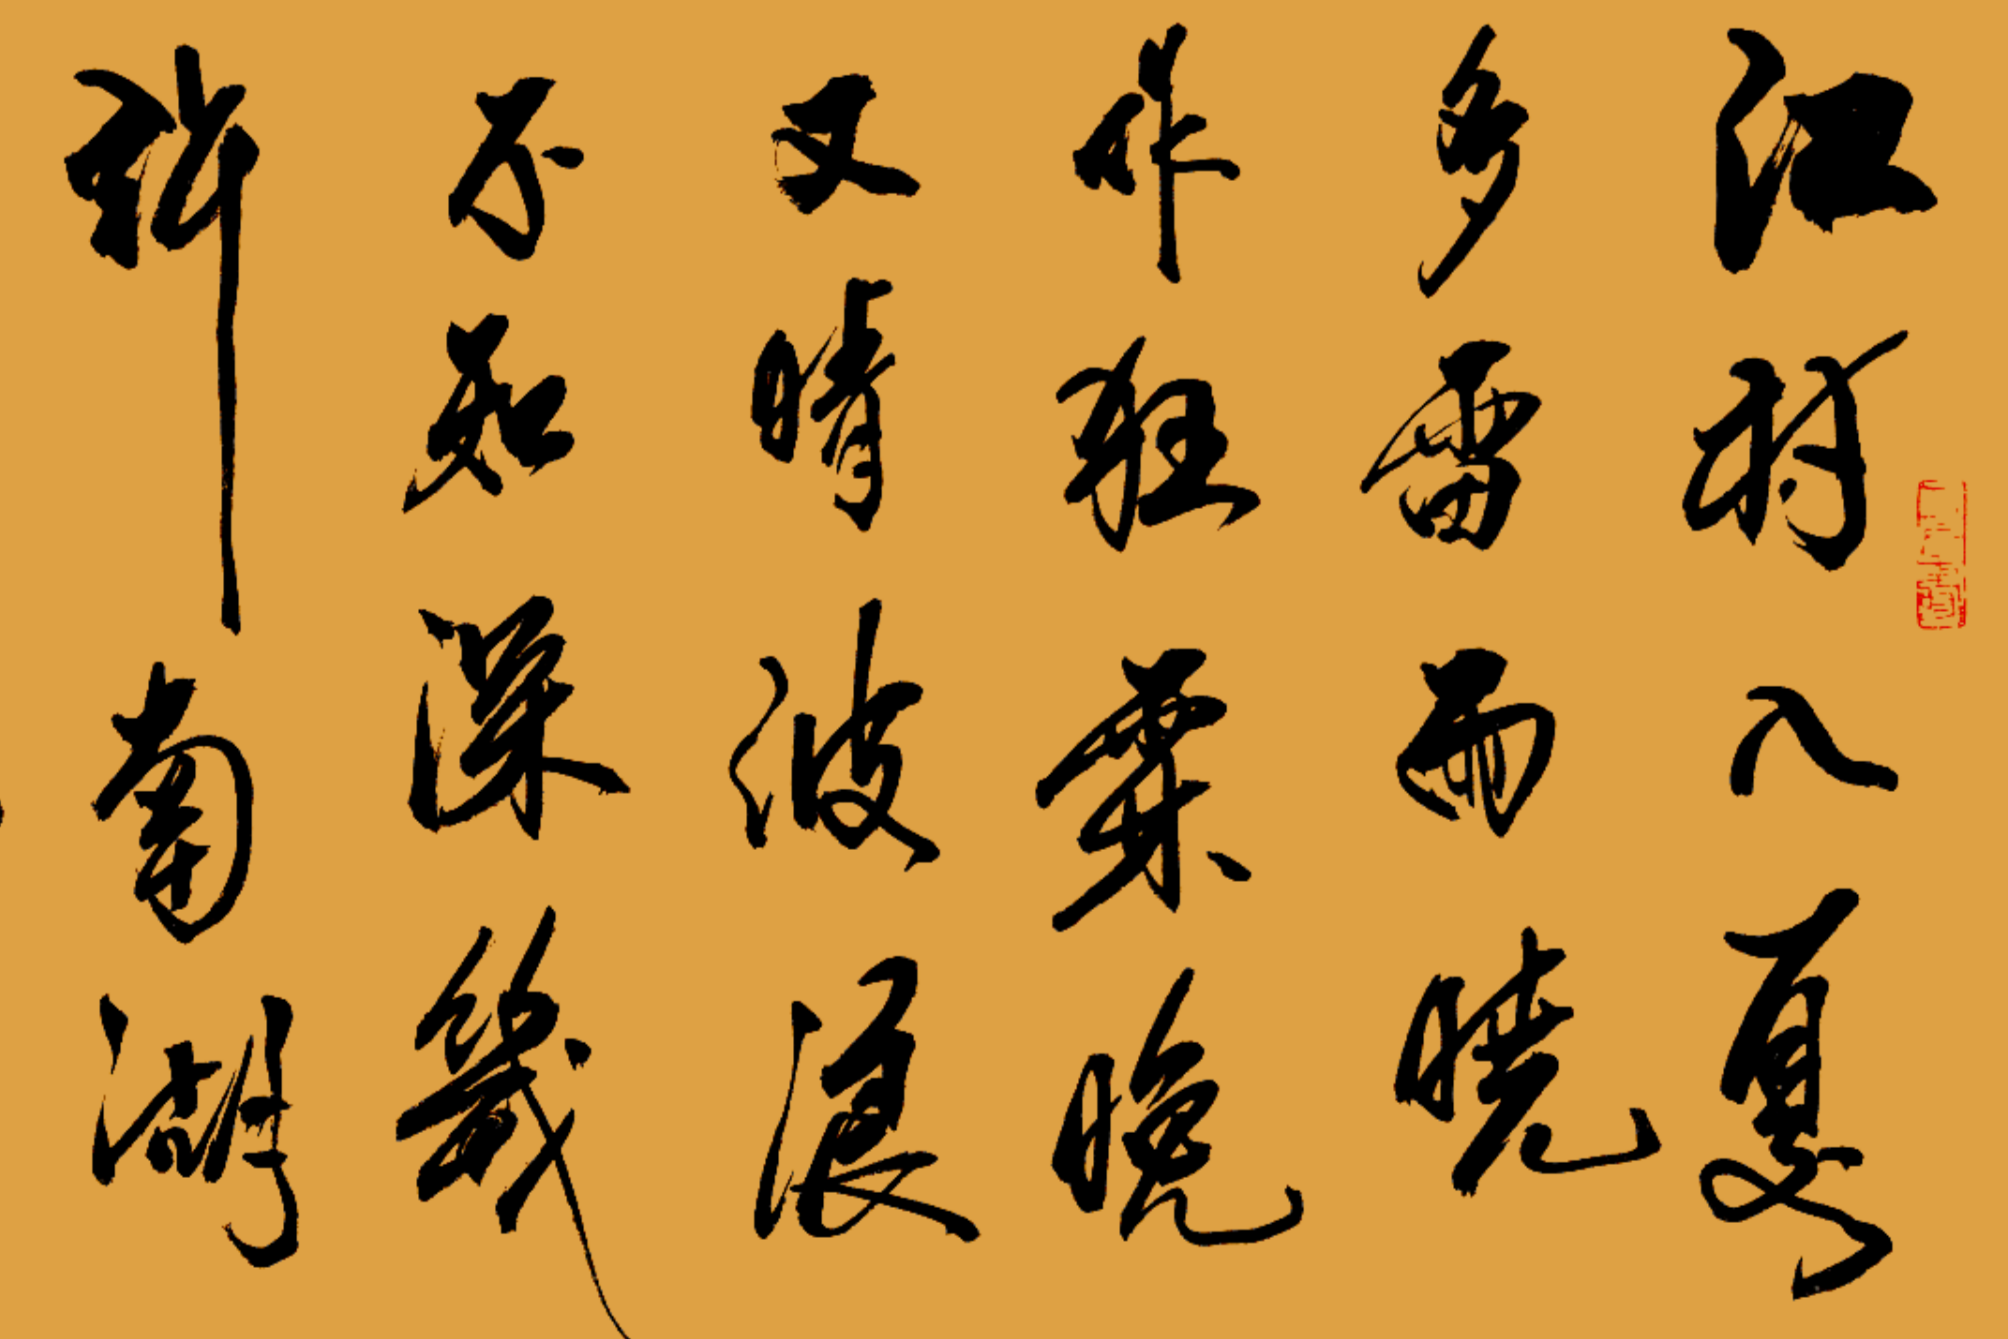 江村入夏
多雷雨曉
作狂霖晚
又晴波浪
不知深幾
許南湖